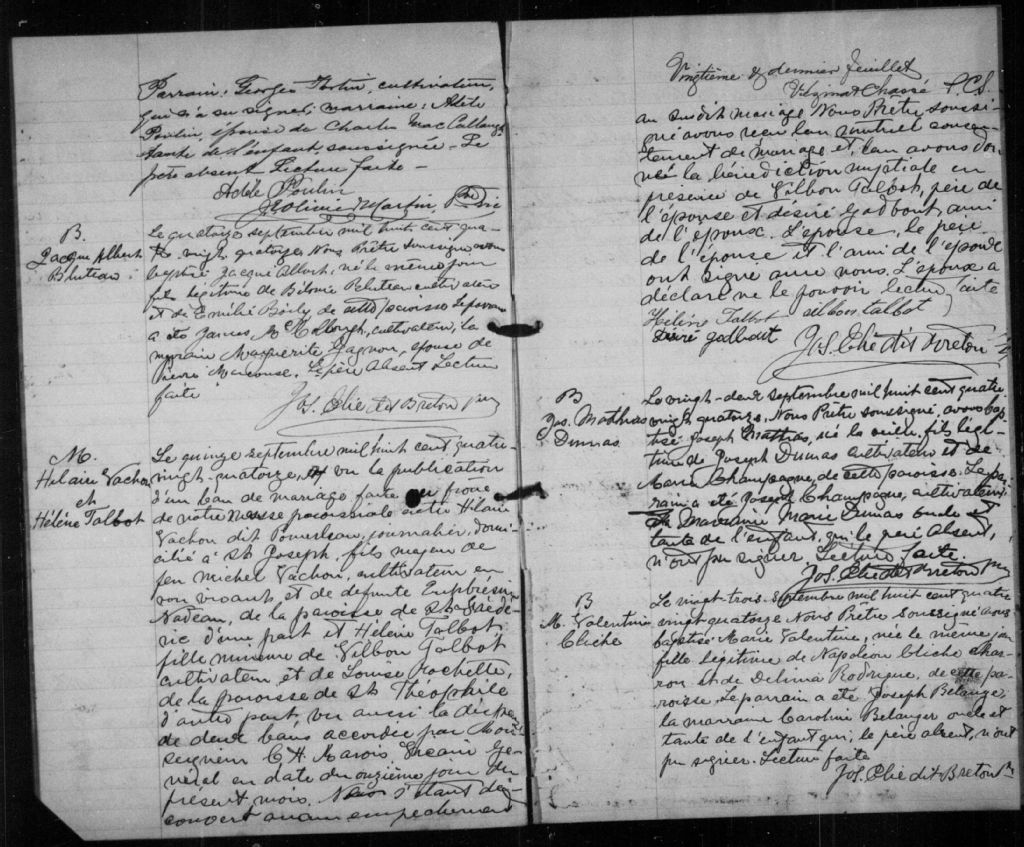 Parrain: Georges Fortin, cultivateur,
qui n'a su signer; marraine: Adèle
Poulin, épouse de Charles MacCallany
tante de l'enfant, soussignée. Le
père absent Lecture faite –
Adèle Poulin
Martin, Ptre
B.
Jacque Albert
Bluteau
Le quatorze septembre mil huit cent qua-
tre vingt quatorze Nous Prêtre soussigné avons
baptisé Jacque Albert, né le même jour
fils légitime de Bélonie Bluteau cultivateur
et de Emilie Boily de cette paroisse Le parrain
a été James cultivateur, la
marraine Marguerite Gagnon, épouse de
Pierre Le père absent Lecture
faite
Jos. Elie dit Breton Ptre
M.
Hélaire Vachon
et
Hélène Talbot
Le quinze septembre mil huit cent quatre
vingt-quatorze, vu la publication
d'un ban de mariage faite au prône
de notre Messe paroissiale entre Hélaire
Vachon dit Pomerleau, journalier, domi-
cilié à St Joseph, fils majeur de
feu Michel Vachon, cultivateur en
son vivant, et de defunte Euphrésine
Nadeau, de la paroisse de St Fréde-
ric d'une part et Hélène Talbot
fille mineure de Vilbon Talbot
cultivateur et de Louise Rochette,
de la paroisse de St Théophile
d'autre part, vu aussi la dispense
de deux bans accordée par Mon-
seigneur C. H. Marois Vicaire Gé-
néral en date du onzième jour du
présent mois. Ne s'étant dé-
couvert aucun empêchement
Vingtième & dernier feuillet
Vézina & Chassé P.C.S.
au susdit mariage Nous Prêtre soussi-
gné avons reçu leur mutuel consen-
tement de mariage et leur avons don-
né la bénédiction nuptiale en
présence de Vilbon Talbot, père de
l'épouse et désiré Godbout, ami
de l'époux. L'épouse, le père
de l'épouse et l'ami de l'époux
ont signé avec nous. L'époux a
déclaré ne le pouvoir lecture faite
Hélène Talbot vilbon talbot
Désiré godbout
Jos. Elie dit Breton Ptre
B
Jos. Mathias
Dumas
Le vingt-deux septembre mil huit cent quatre
vingt quatorze, Nous Prêtre soussigné, avons bap-
tisé Joseph Mathias, né la veille, fils légi-
time de Joseph Dumas cultivateur et de
Marie Champagne, de cette paroisse. Le pa-
rrain a été Joseph Champagne, cultivateur,
et Marraine Marie Dumas oncle et
tante de l'enfant, qui, le père absent,
n'ont pu signer. Lecture faite.
Jos. Elie dit Breton Ptre
B
M. Valentine
Cliche
Le vingt-trois septembre mil huit cent quatre
vingt quatorze Nous Prêtre soussigné avons
baptisé Marie Valentine, née le même jour
fille légitime de Napoléon Cliche char-
ron et de Délima Rodrigue, de cette pa-
roisse. Le parrain a été Joseph Belanger,
la marraine Caroline Belanger oncle et
tante de l'enfant qui, le père absent, n'ont
pu signer. Lecture faite
Jos. Elie dit Breton Ptre